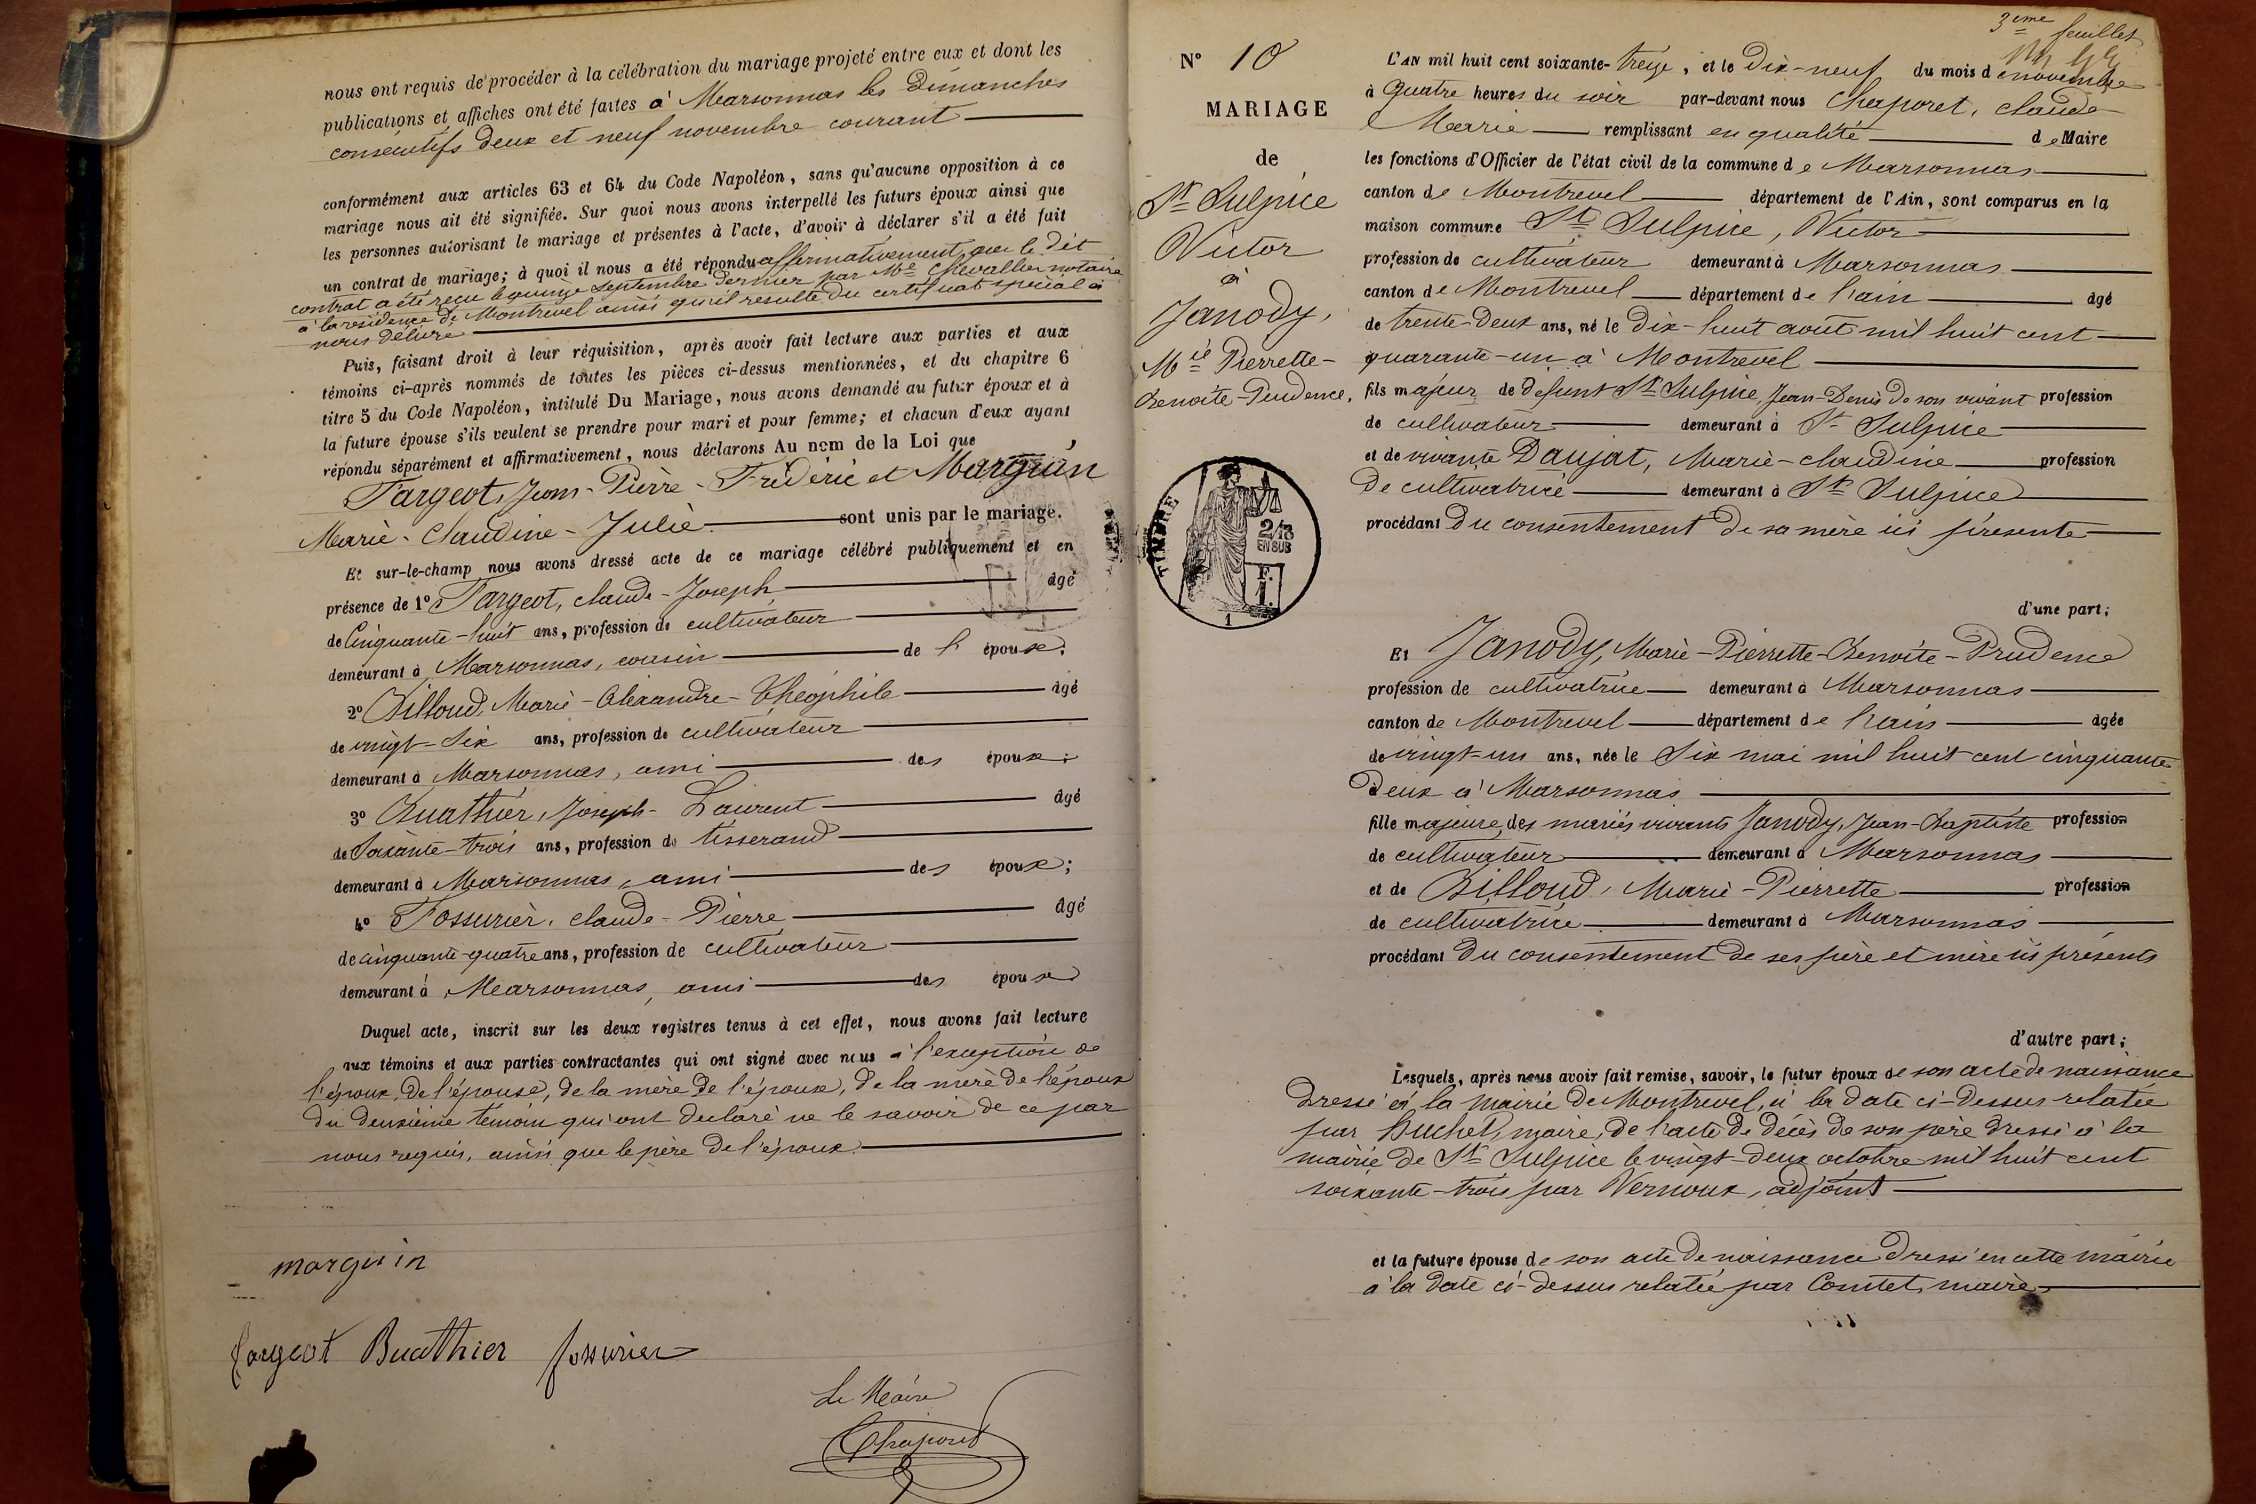 nous ont requis de procéder à la célébration du mariage projeté entre eux et dont les
publications et affiches ont été faites à Marsonnas les Dimanches
consécutifs deux et neuf novembre courant
conformément aux articles 63 et 64 du Code Napoléon, sans qu'aucune opposition à ce
mariage nous ait été signifiée. Sur quoi nous avons interpellé les futurs époux ainsi que
les personnes autorisant le mariage et présentes à l'acte, d'avoir à déclarer s'il a été fait
un contrat de mariage; à quoi il nous a été répondu affirmativement, que le dit
contrat a été reçu le quinze Septembre dernier par Me Chevallier notaire
à la résidence de Montrevel ainsi qu'il résulte du certificat spécial à
nous délivré
Puis, faisant droit à leur réquisition, après avoir fait lecture aux parties et aux
témoins ci-après nommés de toutes les pièces ci-dessus mentionnées, et du chapitre 6
titre 5 du Code Napoléon, intitulé Du Mariage, nous avons demandé au futur époux et à
la future épouse s'ils veulent se prendre pour mari et pour femme; et chacun d'eux ayant
répondu séparément et affirmativement, nous déclarons Au nom de la Loi que
Fargeot, Jean-Pierre-Frédéric et Marguin,
Marie-Claudine-Julie sont unis par le mariage.
Et sur-le-champ nous avons dressé acte de ce mariage célébré publiquement et en
présence de 1° Fargeot, Claude-Joseph âgé
de Cinquante-huit ans, profession de cultivateur
demeurant à Marsonnas, cousin de l'époux;
2° Billoud, Marie-Alexandre-Théophile âgé
de vingt-six ans, profession de cultivateur
demeurant à Marsonnas, ami des époux;
3° Buathier, Joseph-Laurent âgé
de Soixante-trois ans, profession de tisserand
demeurant à Marsonnas, ami des époux;
4° Fossurier, Claude-Pierre âgé
de cinquante-quatre ans, profession de cultivateur
demeurant à Marsonnas, ami des époux
Duquel acte, inscrit sur les deux registres tenus à cet effet, nous avons fait lecture
aux témoins et aux parties contractantes qui ont signé avec nous à l'exception de
l'époux, de l'épouse, de la mère de l'époux, de la mère de l'époux
du deuxième témoin qui ont déclaré ne le savoir de ce par
nous requis, ainsi que le père de l'époux.
marguin
fargeot Buathier fossurier
Le Maire
Chaporet
3eme feuillet
N° 10
MARIAGE
de
St Sulpice
Victor
à
Janody,
Mie Pierrette-
Benoîte-Prudence.
TIMBRE
2/10
EN SUS
F.
1.
1
L'AN mil huit cent soixante-treize, et le Dix-neuf du mois de novembre
à Quatre heures du soir par-devant nous Chaporet, Claude
Marie remplissant en qualité de Maire
les fonctions d'Officier de l'état civil de la commune de Marsonnas
canton de Montrevel département de l'Ain, sont comparus en la
maison commune St Sulpice, Victor
profession de cultivateur demeurant à Marsonnas
canton de Montrevel département de l'ain âgé
de trente-deux ans, né le Dix-huit août mil huit cent
quarante-un à Montrevel
fils majeur de défunt St Sulpice, Jean-Denis de son vivant profession
de cultivateur demeurant à St Sulpice
et de vivante Daujat, Marie-Claudine profession
de cultivatrice demeurant à St Sulpice
procédant du consentement de sa mère ici présente
d'une part;
Et Janody, Marie-Pierrette-Benoîte-Prudence
profession de cultivatrice demeurant à Marsonnas
canton de Montrevel département de l'ain âgée
de vingt-un ans, née le Six mai mil huit cent cinquante
Deux à Marsonnas
fille majeure, des mariés vivants Janody, Jean-Baptiste profession
de cultivateur demeurant à Marsonnas
et de Billoud, Marie-Pierrette profession
de cultivatrice demeurant à Marsonnas
procédant du consentement de ses père et mère ici présents
d'autre part;
Lesquels, après nous avoir fait remise, savoir, le futur époux de son acte de naissance
dressé à la mairie de Montrevel, à la date ci-dessus relatée
par Buchet, maire, de l'acte de décès de son père dressé à la
mairie de St Sulpice le vingt-deux octobre mil huit cent
soixante-trois par Vernoux, adjoint
et la future épouse de son acte de naissance dressé en cette mairie
à la date ci-dessus relatée par Comtet, maire